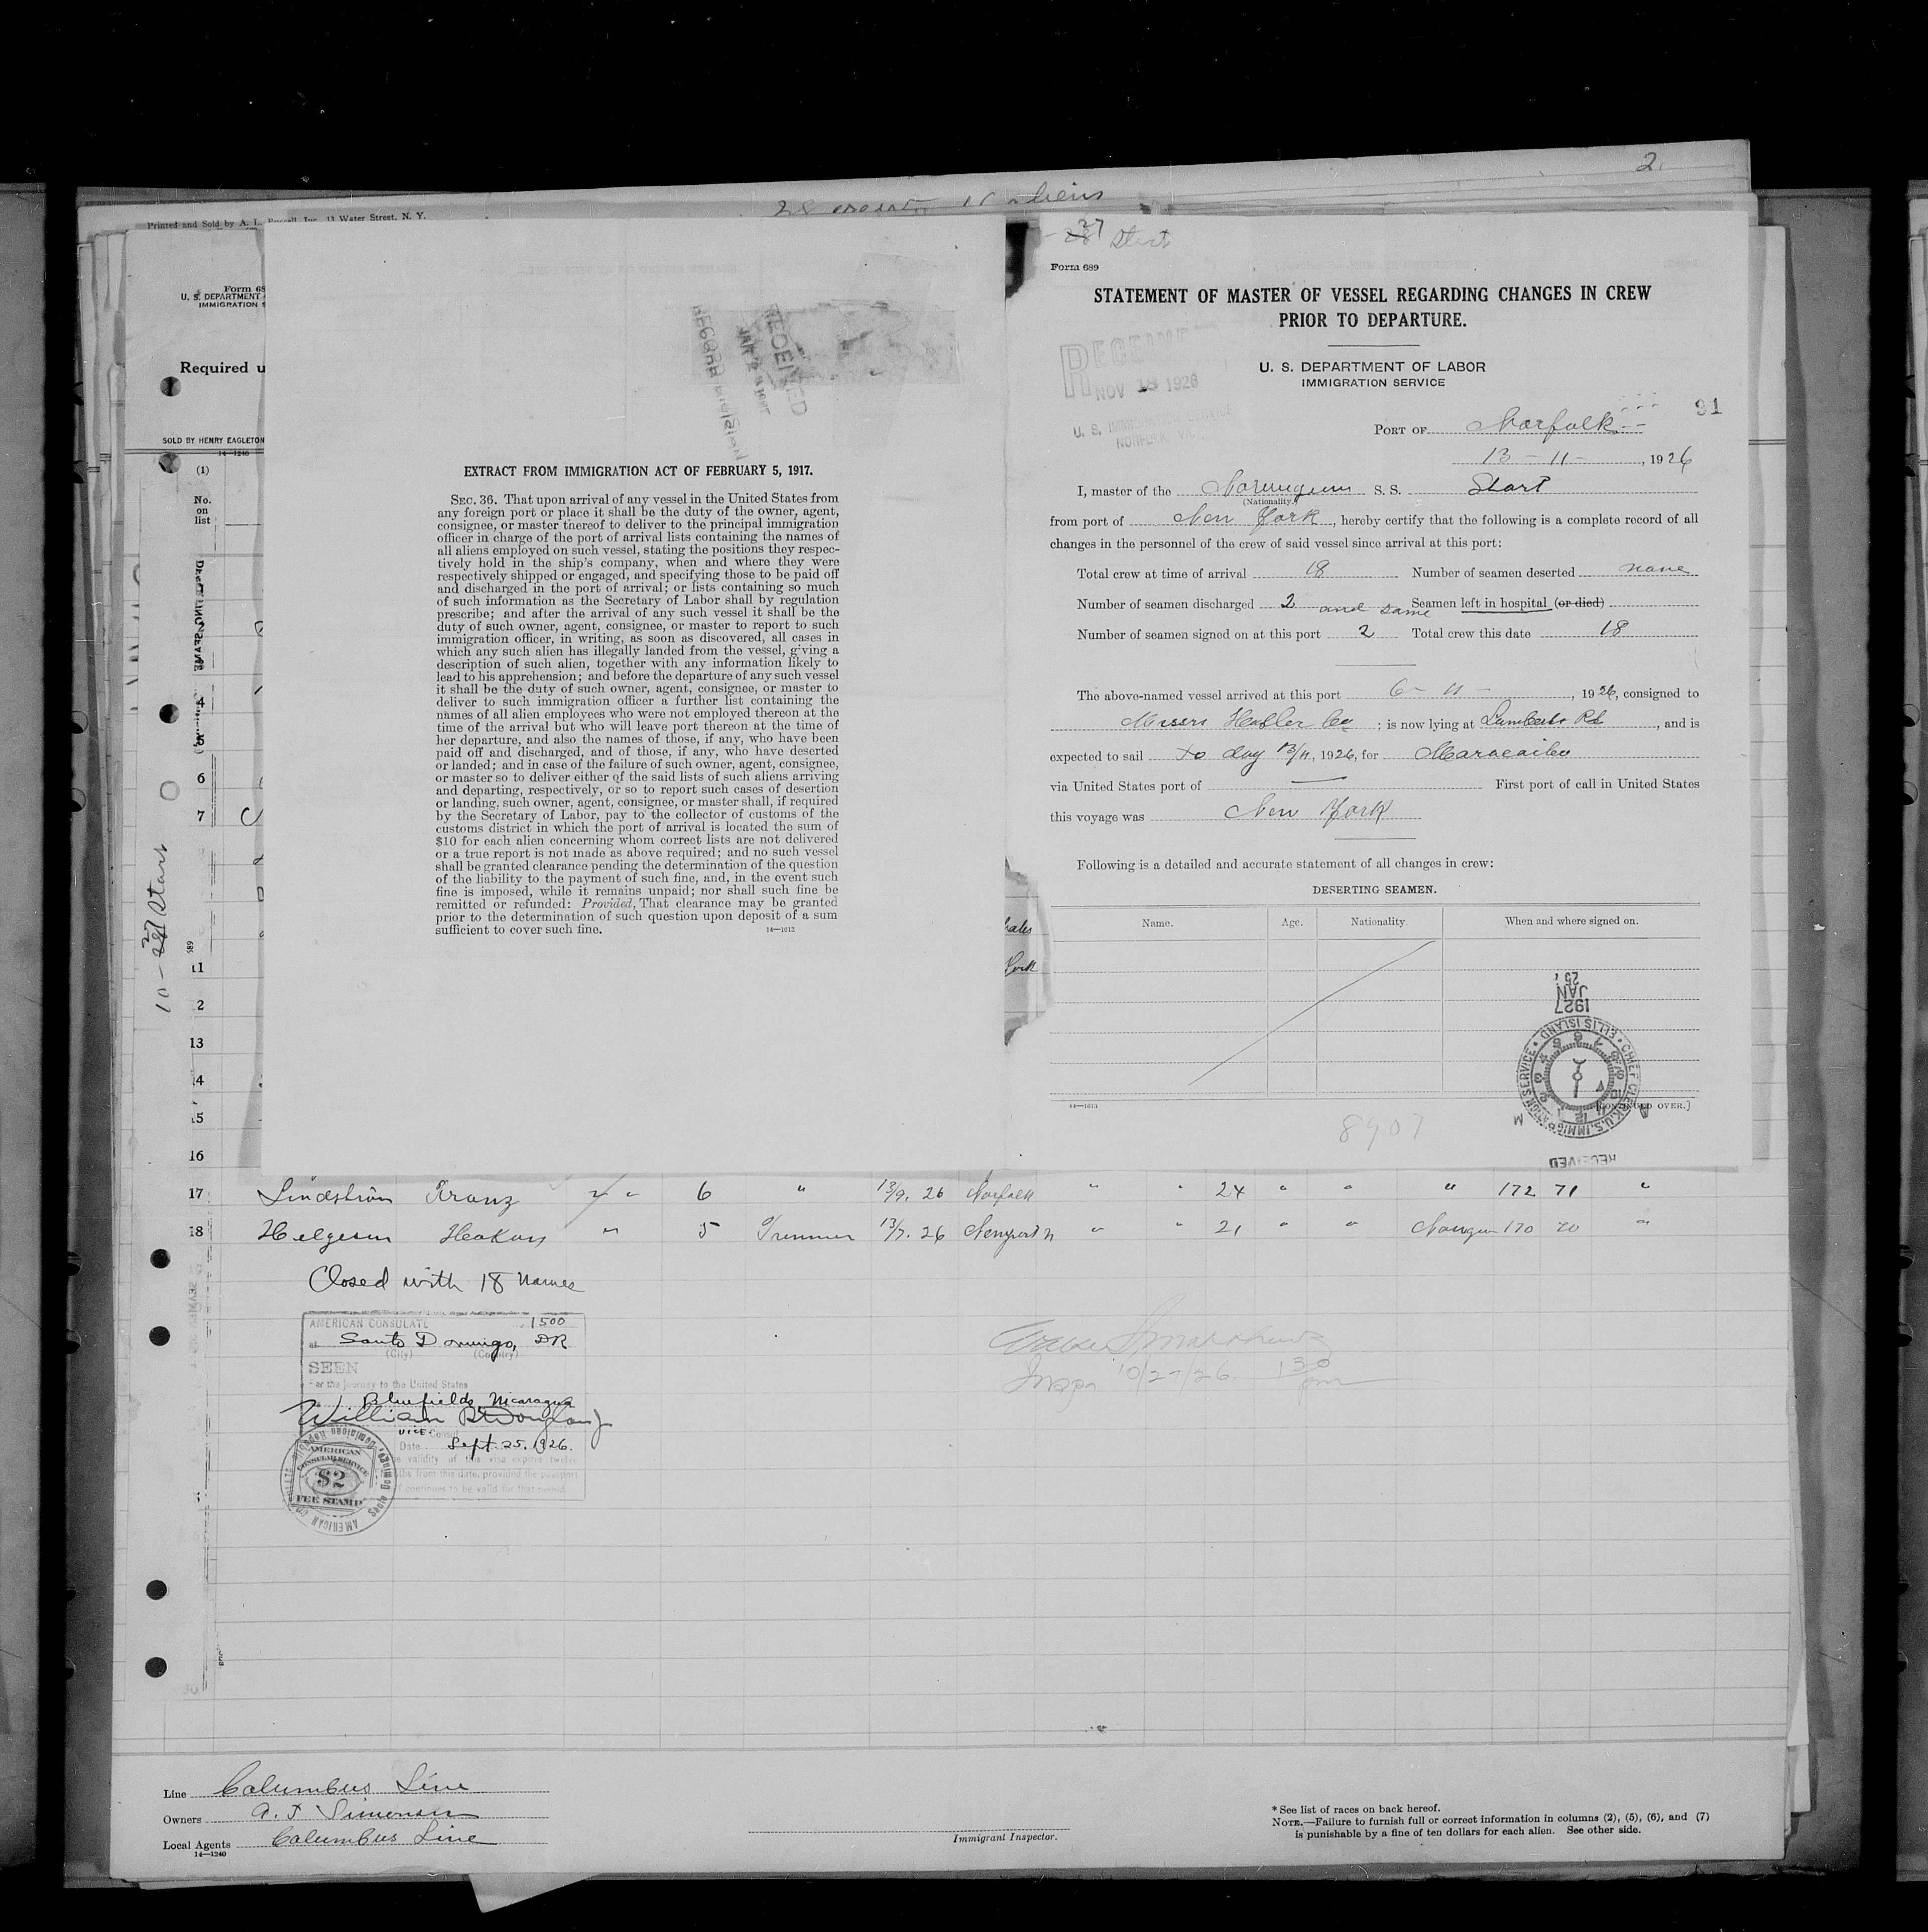 2
Printed and Sold by A. L. Russell, Inc., 13 Water Street, N. Y.
aliens
Form 68
U. S. DEPARTMENT
IMMIGRATION S
Required u
SOLD BY HENRY EAGLETON
14—1240
(1)
No.
on
list
4
5
6
7
11
2
13
14
15
16
10 - 27 Start
RECEIVED
RECORD DIVISION
EXTRACT FROM IMMIGRATION ACT OF FEBRUARY 5, 1917.
SEC. 36. That upon arrival of any vessel in the United States from
any foreign port or place it shall be the duty of the owner, agent,
consignee, or master thereof to deliver to the principal immigration
officer in charge of the port of arrival lists containing the names of
all aliens employed on such vessel, stating the positions they respec-
tively hold in the ship's company, when and where they were
respectively shipped or engaged, and specifying those to be paid off
and discharged in the port of arrival; or lists containing so much
of such information as the Secretary of Labor shall by regulation
prescribe; and after the arrival of any such vessel it shall be the
duty of such owner, agent, consignee, or master to report to such
immigration officer, in writing, as soon as discovered, all cases in
which any such alien has illegally landed from the vessel, giving a
description of such alien, together with any information likely to
lead to his apprehension; and before the departure of any such vessel
it shall be the duty of such owner, agent, consignee, or master to
deliver to such immigration officer a further list containing the
names of all alien employees who were not employed thereon at the
time of the arrival but who will leave port thereon at the time of
her departure, and also the names of those, if any, who have been
paid off and discharged, and of those, if any, who have deserted
or landed; and in case of the failure of such owner, agent, consignee,
or master so to deliver either of the said lists of such aliens arriving
and departing, respectively, or so to report such cases of desertion
or landing, such owner, agent, consignee, or master shall, if required
by the Secretary of Labor, pay to the collector of customs of the
customs district in which the port of arrival is located the sum of
$10 for each alien concerning whom correct lists are not delivered
or a true report is not made as above required; and no such vessel
shall be granted clearance pending the determination of the question
of the liability to the payment of such fine, and, in the event such
fine is imposed, while it remains unpaid; nor shall such fine be
remitted or refunded: Provided, That clearance may be granted
prior to the determination of such question upon deposit of a sum
sufficient to cover such fine.
14—1613
27 Start
Form 689
STATEMENT OF MASTER OF VESSEL REGARDING CHANGES IN CREW
PRIOR TO DEPARTURE.
U. S. DEPARTMENT OF LABOR
IMMIGRATION SERVICE
RECEIVED
NOV 13 1926
U. S. IMMIGRATION SERVICE
NORFOLK, VA.
91
PORT OF Norfolk
13 - 11 - , 1926
I, master of the Norwegian S. S. Start
(Nationality.)
from port of New York, hereby certify that the following is a complete record of all
changes in the personnel of the crew of said vessel since arrival at this port:
Total crew at time of arrival 18 Number of seamen deserted none
Number of seamen discharged 2 and same Seamen left in hospital (or died)
Number of seamen signed on at this port 2 Total crew this date 18
The above-named vessel arrived at this port 6 - 11 - , 1926, consigned to
Messrs Hasler Co ; is now lying at Lamberts Pt , and is
expected to sail to day 13/11, 1926, for Maracaibo
via United States port of — First port of call in United States
this voyage was New York
Following is a detailed and accurate statement of all changes in crew:
DESERTING SEAMEN.
Name. Age. Nationality. When and where signed on.
York
14—1613
[CONTINUED OVER.]
JAN 25
1927
CHIEF CLERK U.S. IMMIGRATION SERVICE • ELLIS ISLAND
RECEIVED
8907
17 Lindström Franz " 6 " 13/9. 26 Norfolk " " 24 " " " 172 71 "
18 Helgesen Haakon " 5 Trimmer 13/7. 26 Newport N " " 21 " " Norwegian 170 70 "
Closed with 18 names
AMERICAN CONSULATE 1500
at Santo Domingo, DR
(City) (Country)
SEEN
For the journey to the United States
Bluefields, Nicaragua
William B. Douglas Jr
Vice Consul
Date Sept. 25. 1926.
The validity of this visa expires twelve
months from this date, provided the passport
continues to be valid for that period.
AMERICAN
CONSULAR SERVICE
$2
FEE STAMP
10/27/26. 130
pm
Line Columbus Line
Owners A. F Simonsen
Local Agents Columbus Line
14—1240
Immigrant Inspector.
* See list of races on back hereof.
NOTE.—Failure to furnish full or correct information in columns (2), (5), (6), and (7)
is punishable by a fine of ten dollars for each alien. See other side.